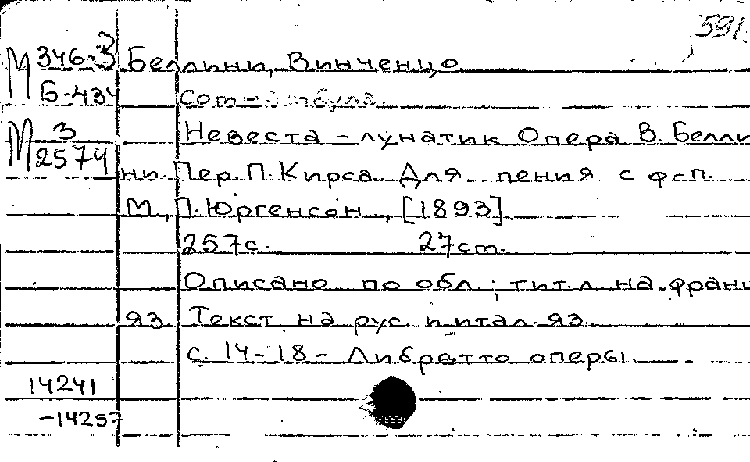 591
М 346-3 Беллини, Винченцо
Б-434
М 3 Невеста-лунатик Опера В. Белли
2574
ни Пер. П. Кирса Для пения с ф-п.
М., П. Юргенсон, [1893]
257с. 27см.
Описано по обл.; тит. л. на франц
яз Текст на рус. и итал. яз.
с. 14-18 - Либретто оперы
14241
-14257